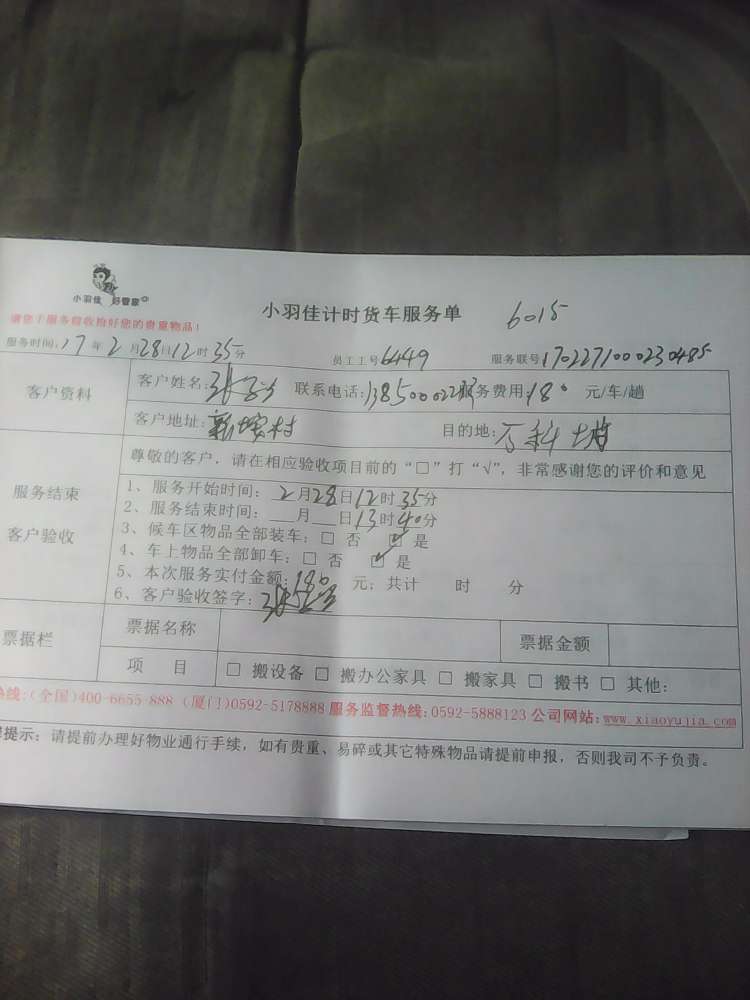 小羽佳 好管家
小羽佳计时货车服务单 6015
请您于服务验收检好您的贵重物品!
服务时间:17年2月28日12时35分 员工工号6449 服务联号1702271000230485
客户资料
客户姓名: 联系电话: 服务费用:180 元/车/趟
客户地址: 目的地:万科
尊敬的客户,请在相应验收项目前的“□”打“√”,非常感谢您的评价和意见
服务结束
客户验收
1、服务开始时间: 2月28日12时35分
2、服务结束时间: __月__日13时40分
3、候车区物品全部装车:□ 否 ☑ 是
4、车上物品全部卸车:□ 否 ☑ 是
5、本次服务实付金额:180 元;共计 时 分
6、客户验收签字:
票据栏
票据名称 票据金额
项 目 □ 搬设备 □ 搬办公家具 □ 搬家具 □ 搬书 □ 其他:
热线:(全国)400-6655-888 (厦门)0592-5178888 服务监督热线:0592-5888123 公司网站:www.xiaoyujia.com
提示:请提前办理好物业通行手续,如有贵重、易碎或其它特殊物品请提前申报,否则我司不予负责。